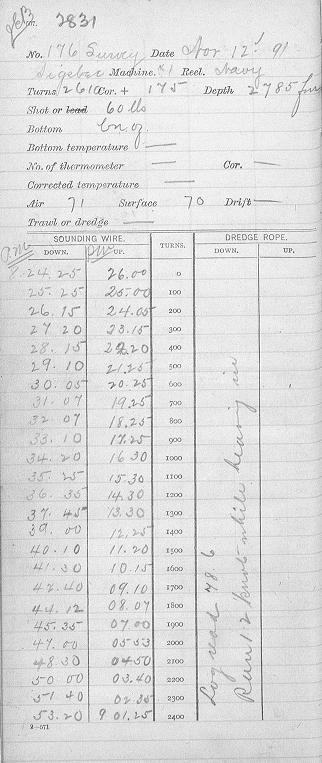 2831
No. 176 Survey Date Nov 12' 91
Sigsbee Machine. #1 Reel. Navy
Turns, 2610 Cor. + 175 Depth 2785 fms
Shot or lead 60 lbs
Bottom bn. oz.
Bottom temperature —
No. of thermometer — Cor. —
Corrected temperature —
Air 71 Surface 70 Drift —
Trawl or dredge —
SOUNDING WIRE. TURNS. DREDGE ROPE.
DOWN. UP. DOWN. UP.
8.24.25 26.00 0
25.25 25.00 100
26.15 24.05 200
27 20 23.15 300
28.15 22.20 400
29.10 21.25 500
30.05 20.25 600
31.07 19.25 700
32 07 18.25 800
33.10 17.25 900
34.20 16 30 1000
35.25 15.30 1100
36.35 14.30 1200
37.45 13.30 1300
39.00 12.25 1400
40.10 11.20 1500
41.30 10.15 1600
42.40 09.10 1700
44.12 08.07 1800
45.35 07.00 1900
47.00 05 53 2000
48.30 04 50 2100
50 00 03.40 2200
51.40 02.35 2300
53.20 9 01.25 2400
Log read 78.6
Run 1.2 knots while heaving in
2—571